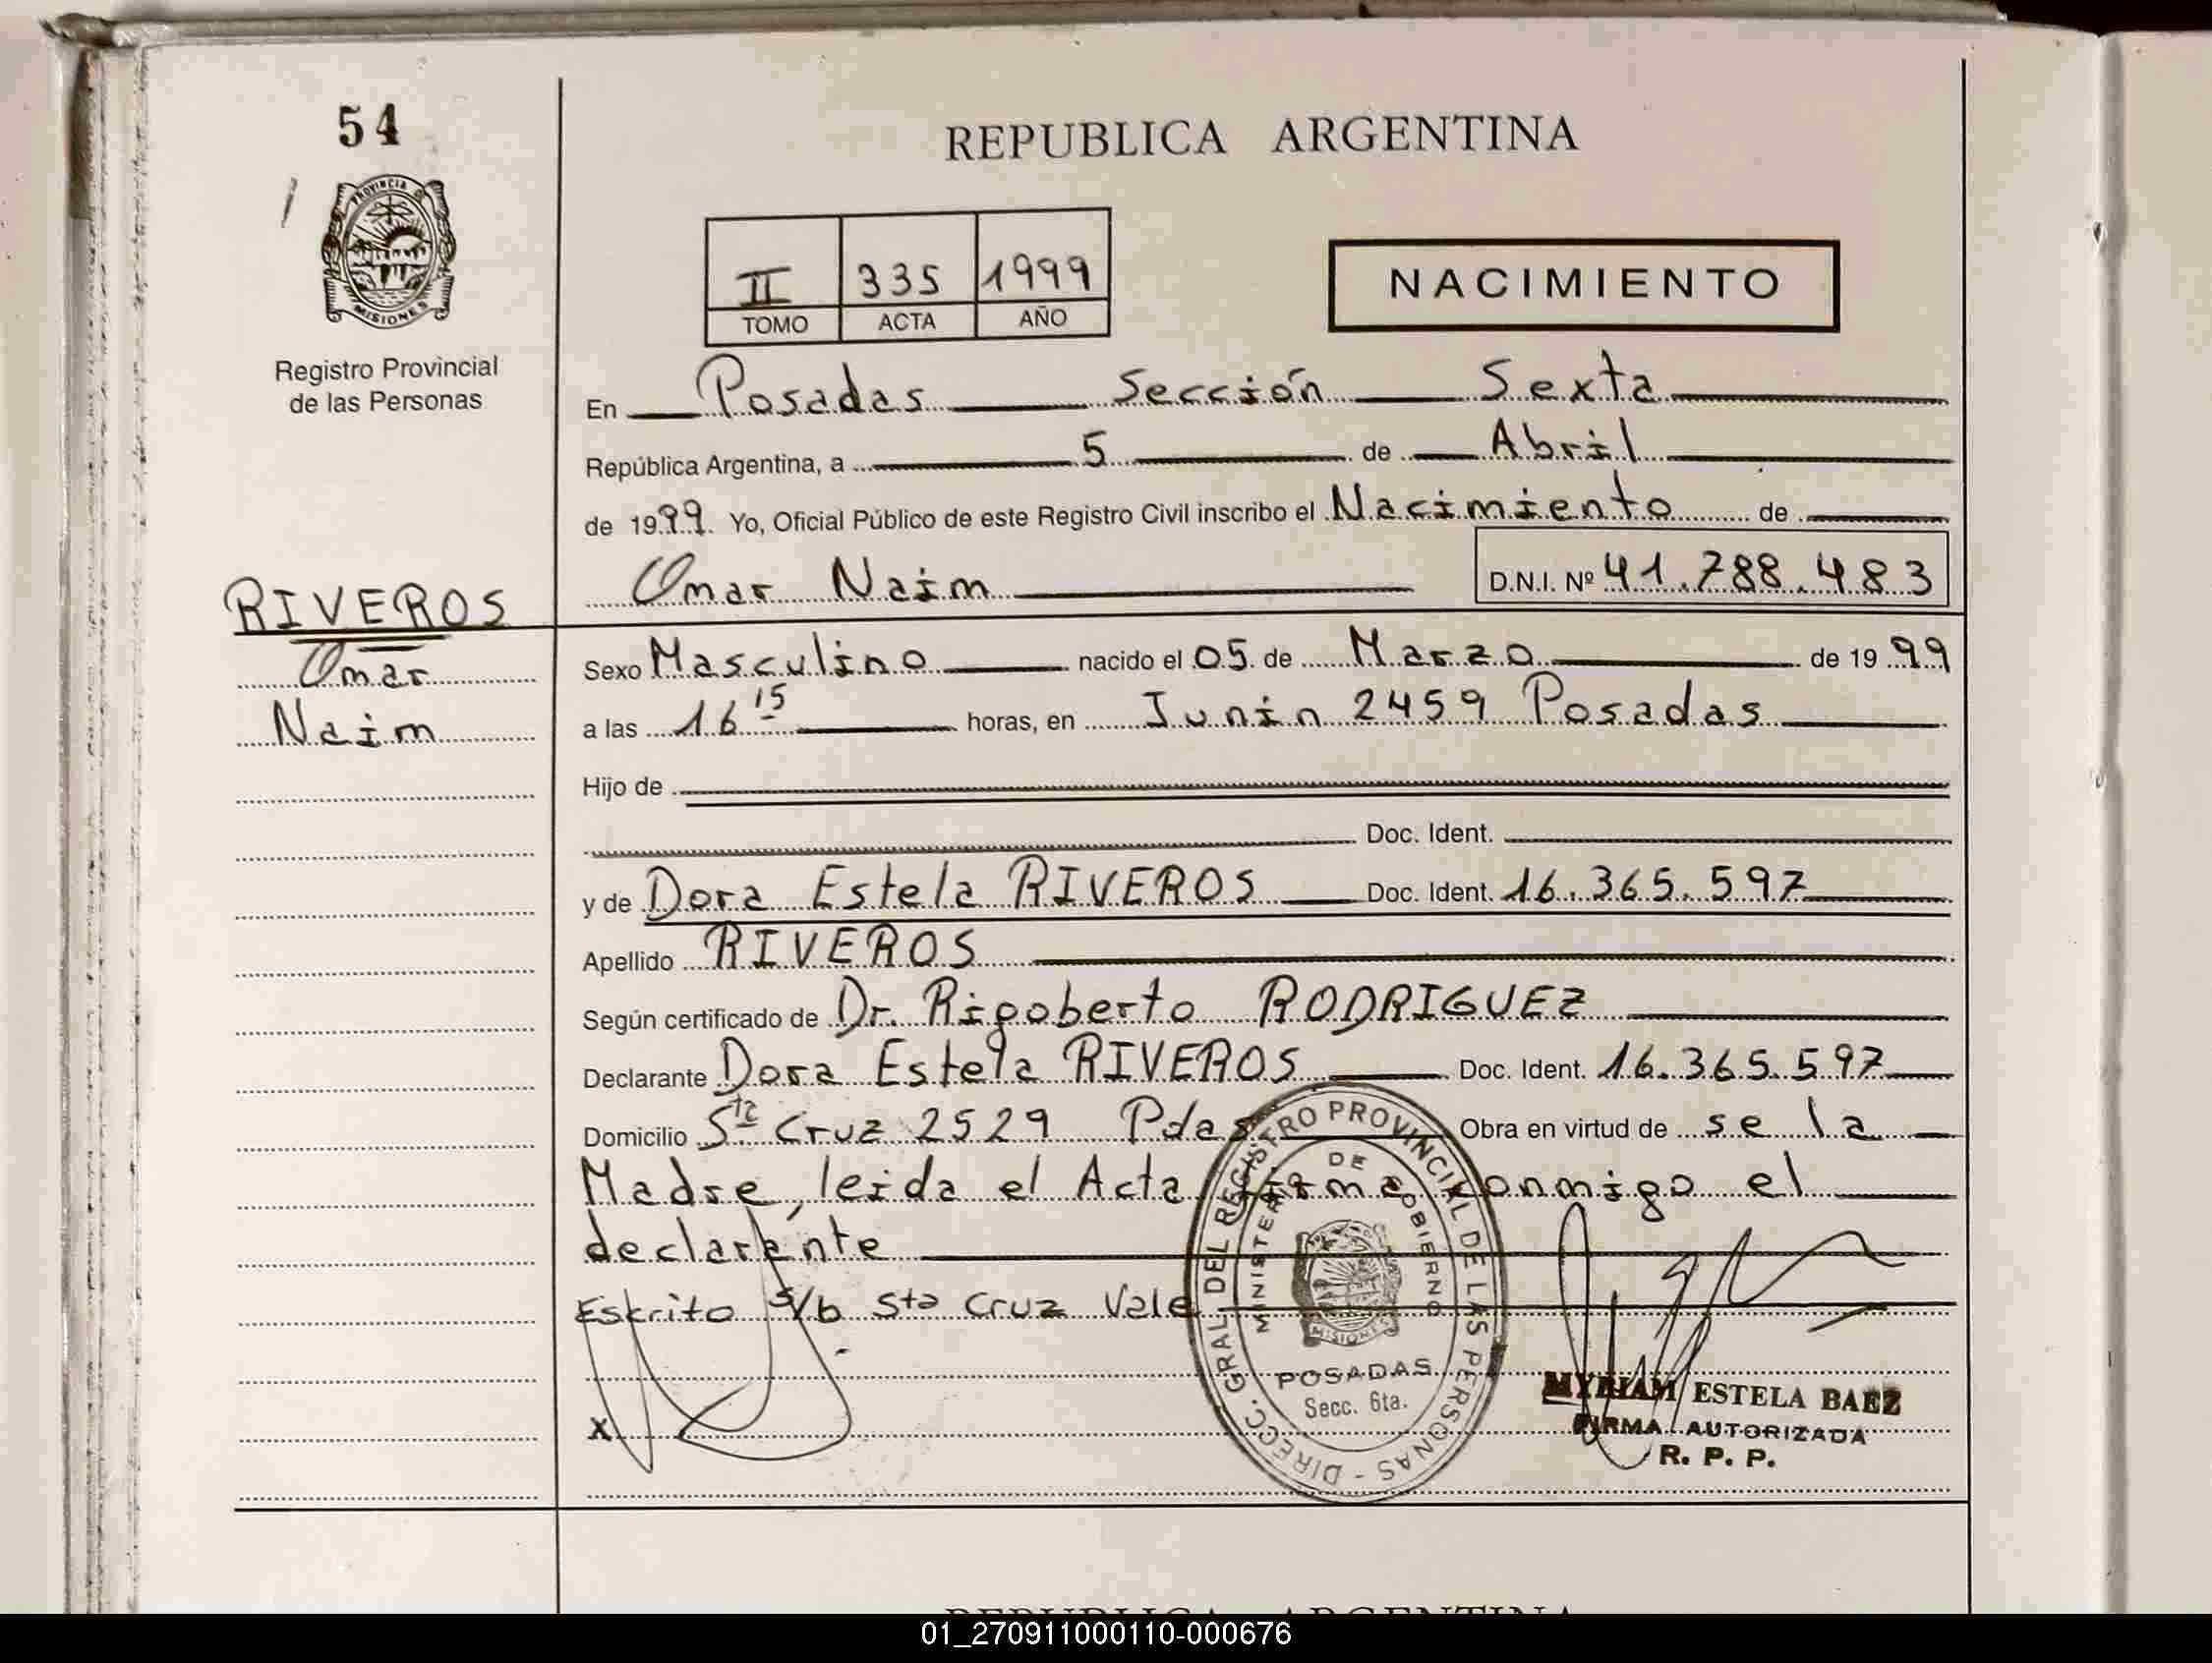 54
PROVINCIA DE
MISIONES
Registro Provincial
de las Personas
REPUBLICA ARGENTINA
II 335 1999
TOMO ACTA AÑO
NACIMIENTO
En Posadas Sección Sexta
República Argentina, a 5 de Abril
de 1999. Yo, Oficial Público de este Registro Civil inscribo el Nacimiento de
Omar Naim D.N.I. Nº 41.788.483
RIVEROS
Omar
Naim
Sexo Masculino nacido el 05 de Marzo de 1999
a las 16 15 horas, en Junin 2459 Posadas
Hijo de
Doc. Ident.
y de Dora Estela RIVEROS Doc. Ident. 16.365.597
Apellido RIVEROS
Según certificado de Dr. Rigoberto RODRIGUEZ
Declarante Dora Estela RIVEROS Doc. Ident. 16.365.597
Domicilio Sta Cruz 2529 Pdas Obra en virtud de se la
Madre, leida el Acta firma conmigo el
declarante
Escrito s/b Sta Cruz Vale
X
DIRECC. GRAL. DEL REGISTRO PROVINCIAL DE LAS PERSONAS -
MINISTERIO DE GOBIERNO
MISIONES
POSADAS
Secc. 6ta.
MYRIAM ESTELA BAEZ
FIRMA AUTORIZADA
R. P. P.
REPUBLICA ARGENTINA
01_270911000110-000676